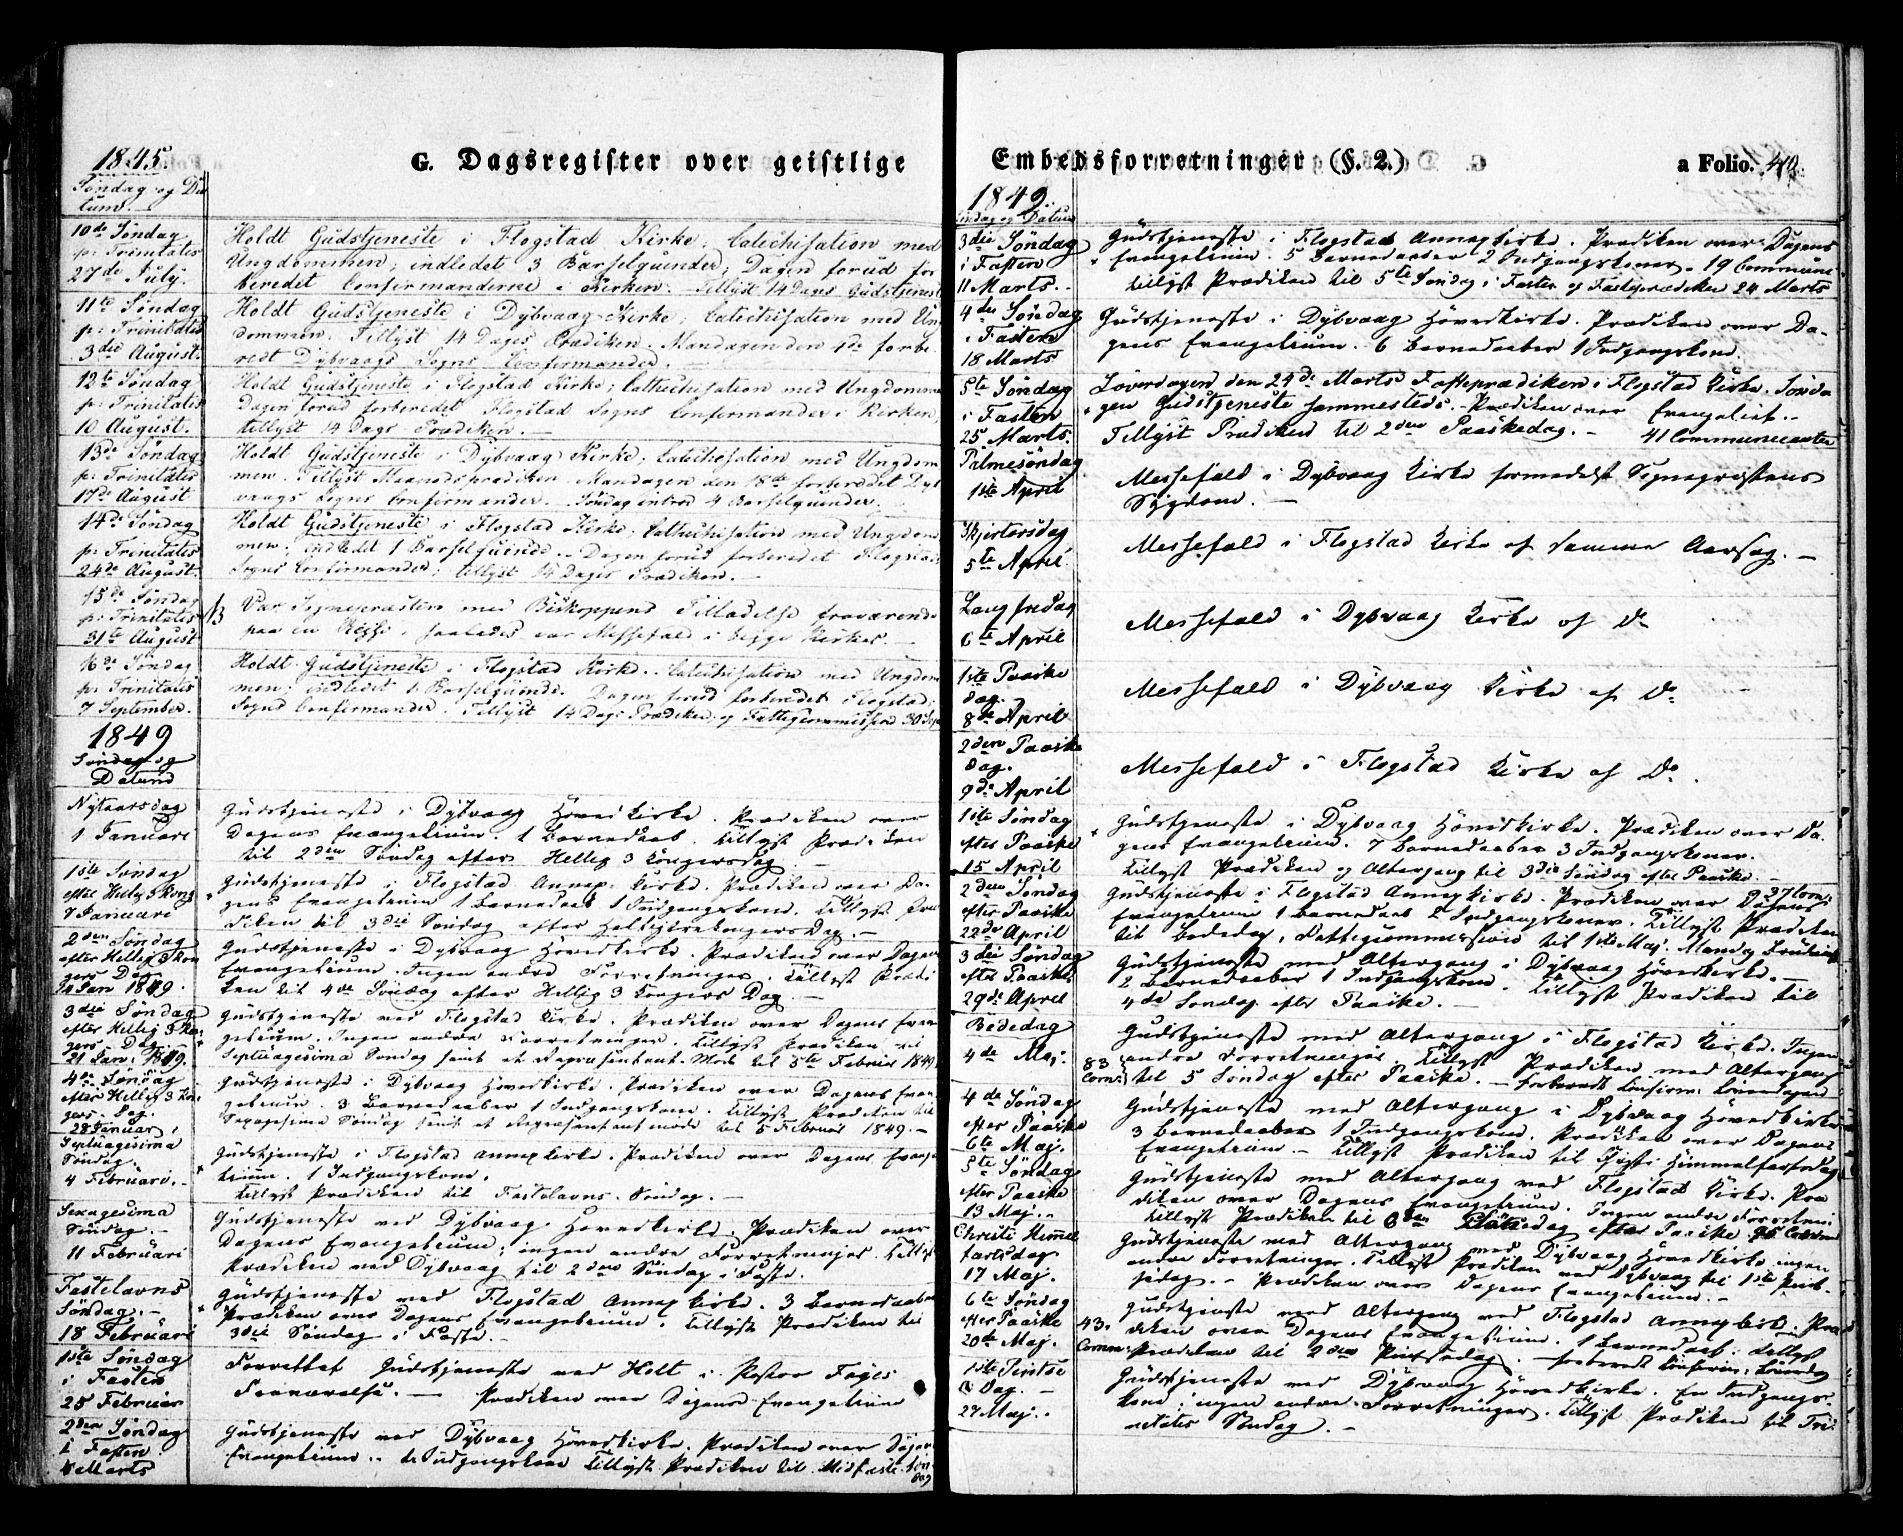 G. Dagsregister over geistlige
1845.
Søndag og Da
tum.
10de Søndag
p: Trinitatis
27de July.
Holdt Gudstjeneste i Flogstad Kirke; Catechisation med
Ungdommen; indledet 3 Barselquinder; Dagen forud for
beredet Confirmanderne i Kirken. Tillyst 14 Dages Gudstjeneste
11te Søndag
p: Trinitatis
3die August.
Holdt Gudstjeneste i Dybvaag Kirke; Catechisation med Un
dommen. Tillyst 14 Dages Prædiken. Mandagen den 4de forbe
redt Dybvaags Sogns Confirmander.
12te Søndag
p: Trinitatis
10 August.
Holdt Gudstjeneste i Flogstad Kirke; Cathechisation med Ungdomme
Dagen forud forberedet Flogstad Sogns Confirmander i Kirken,
tillyst 14 Dags Prædiken. —
13de Søndag
p: Trinitatis
17de August
Holdt Gudstjeneste i Dybvaag Kirke; Catechisation med Ungdom
men. Tillyst Maanedsprædiken. Mandagen den 18de forberedet Dyb
vaags Sogns Confirmander. Søndag introd 4 Barselquinder.
14de Søndag
p: Trinitatis
24de August.
Holdt Gudstjeneste i Flogstad Kirke. Cathechisation med Ungdom
men; indledet 1 Barselquinde. Dagen forud forberedet Flogstad
Sogns Confirmander; tillyst 14 Dages Prædiken. —
15de Søndag
p: Trinitatis
31te August
Var Sognepræsten med Biskoppens Tilladelse fraværende
paa en Reise, saaledes var Messefald i begge Kirker. —
16de Søndag
p: Trinitatis
7 September.
Holdt Gudstjeneste i Flogstad Kirke. Catechisation med Ungdom
men; indledet 1 Barselquinde. Dagen forud forberedet Flogstad
Sogns Confirmander. Tillyst 14 Dags Prædiken og Fattigcommission 30 Sep
1849
Søndag og
Datum
Nytaarsdag
1 Januari
Gudstjeneste i Dybvaag Hovedkirke. Prædiken over
Dagens Evangelium. 1 Barnedaab. Tillyst Prædiken
til 2den Søndag efter Hellig 3 Kongersdag. —
1ste Søndag
efter Hellig 3 Kong
7 Januari
Gudstjeneste i Flogstad Annex Kirke. Prædiken over Da-
gens Evangelium 1 Barnedaab 1 Indgangskone. Tillyst Præ
diken til 3die Søndag efter Helligtrekongers Dag. —
2den Søndag
efter Hellig 3 Kon
gers Dag
14 Jan 1849.
Gudstjeneste i Dybvaag Hovedkirke. Prædiken over Dagens
Evangelium. Ingen andre Forretninger. Tillyst Prædi
ken til 4de Søndag efter Hellig 3 Kongers Dag. —
3die Søndag
efter Hellig 3 Kon
gers Dag.
21 Jan: 1849.
Gudstjeneste ved Flogstad Kirke. Prædiken over Dagens Evan
gelium. Ingen andre Forretninger. Tillyst Prædiken til
Septuagesima Søndag samt et Repræsentant-Møde til 5te Februar 1849
4de Søndag
efter Hellig 3 Kon
gers Dag.
28 Januar
Gudstjeneste i Dybvaag Hovedkirke. Prædiken over Dagens Evan
gelium. 3 Barnedaaber 1 Indgangskone. Tillyst Prædiken til
Sexagesima Søndag samt et Repræsentantmøde til 5 Februar 1849. —
Septuagesima
Søndag.
4 Februari. —
Gudstjeneste i Flogstad Annexkirke. Prædiken over Dagens Evange
lium. 1 Indgangskone.
Tillyst Prædiken til Fastelavns Søndag. —
Sexagesima
Søndag. —
11 Februari
Gudstjeneste ved Dybvaag Hovedkirke. Prædiken over
Dagens Evangelium; ingen andre Forretninger. Tillyst
Prædiken ved Dybvaag til 2den Søndag i Faste.
Fastelavns
Søndag. —
18 Februari
Gudstjeneste ved Flogstad Annex Kirke. 3 Barnedaaber
Prædiken over Dagens Evangelium. Tillyst Prædiken til
3die Søndag i Faste. —
1ste Søndag
i Fasten
25 Februar
Forrettet Gudstjeneste ved Holt i Pastor Fayes
Fraværelse. — Prædiken over Dagens Evangelium
2den Søndag
i Fasten
4 Marts
Gudstjeneste ved Dybvaag Hovedkirke. Prædiken over Dagens
Evangelium. Indgangskone Tillyst Prædiken til Midfaste Søn
dag
Embedsforretninger (§. 2.) a Folio. 49.
1849.
Søndag og Datum
3die Søndag
i Fasten
11 Marts. —
Gudstjeneste i Flogstad Annexkirke. Prædiken over Dagens
Evangelium. 5 Barnedaaber 2 Indgangskoner. 19 Commune
tillyst Prædiken til 5te Søndag i Fasten og Fasteprædiken 24 Marts
4de Søndag
i Fasten
18 Marts
Gudstjeneste i Dybvaag Hovedkirke. Prædiken over Da-
gens Evangelium. 6 Barnedaaber 1 Indgangskone.
5te Søndag
i Fasten
25 Marts.
Løverdagen den 24de Marts Fasteprædiken i Flogstad Kirke. Sønda
gen Gudstjeneste sammesteds. Prædiken over Evangeliet. —
Tillyst Prædiken til 2den Paaskedag. — 41 Communicanter
Palmesøndag
1ste April
Messefald i Dybvaag Kirke formedelst Sognepræstens
Sygdom. —
Skjertorsdag
5te April.
Messefald i Flogstad Kirke af samme Aarsag. —
Langfredag
6te April
Messefald i Dybvaag Kirke af Do
1ste Paaske
dag.
8de April
Messefald i Dybvaag Kirke af Do
2den Paaske
dag.
9de April
Messefald i Flogstad Kirke af Do
1ste Søndag
efter Paaske
15 April
Gudstjeneste i Dybvaag Hovedkirke. Prædiken over Da-
gens Evangelium. 7 Barnedaaber 3 Indgangskoner.
Tillyst Prædiken og Altergang til 3die Søndag efter Paaske. —
2den Søndag
efter Paaske
22de April
Gudstjeneste i Flogstad Annexkirke. Prædiken over Dagens 37 Com:
Evangelium 1 Barnedaab 2 Indgangskoner. Tillyst Prædiken
til Bededag, Fattigcommission til 1ste Maj.
3die Søndag
efter Paaske
29de April
Gudstjeneste med Altergang i Dybvaag Hovedkirke. —
2 Barnedaaber 1 Indgangskone. Tillyst Prædiken til
4de Søndag efter Paaske.
Bededag
4de Maj.
83
Com:
Gudstjeneste med Altergang i Flogstad Kirke. Ingen
andre Forretninger. Tillyst Prædiken med Altergang
til 5 Søndag efter Paaske. — forberedt Confirm: Løverdagen
4de Søndag
efter Paaske
6te Maj.
Gudstjeneste med Altergang i Dybvaag Hovedkirke
3 Barnedaaber 1 Indgangskone. Prædiken over Dagens
Evangelium. — Tillyst Prædiken til Christi Himmelfartsdag
5te Søndag
efter Paaske
13 Maj. —
Gudstjeneste med Altergang ved Flogstad Kirke. Præ
diken over Dagens Evangelium. Ingen andre Forretnin:
Tillyst Prædiken til 6den Søndag efter Paaske
Christi Himmel
fartsdag
17 Maj.
Gudstjeneste med Altergang ved Dybvaag Hovedkirke ingen
andre Forretninger. Tillyst Prædiken ved Dybvaag til 1ste Pint-
sedag. — Prædiken over Dagens Evangelium. —
6te Søndag
efter Paaske
20de Maj.
43.
Comm:
Gudstjeneste med Altergang ved Flogstad Annexkirke. Præ
diken over Dagens Evangelium. 1 Barnedaab. Tillyst
Prædiken til 2den Pintsedag. — forberedt Confirm: Løverdag
1ste Pintse
Dag. —
27 Maj.
Gudstjeneste ved Dybvaag Hovedkirke. En Indgangs-
kone; ingen andre Forretninger. Tillyst Prædiken til Tri-
nitatis Søndag. —